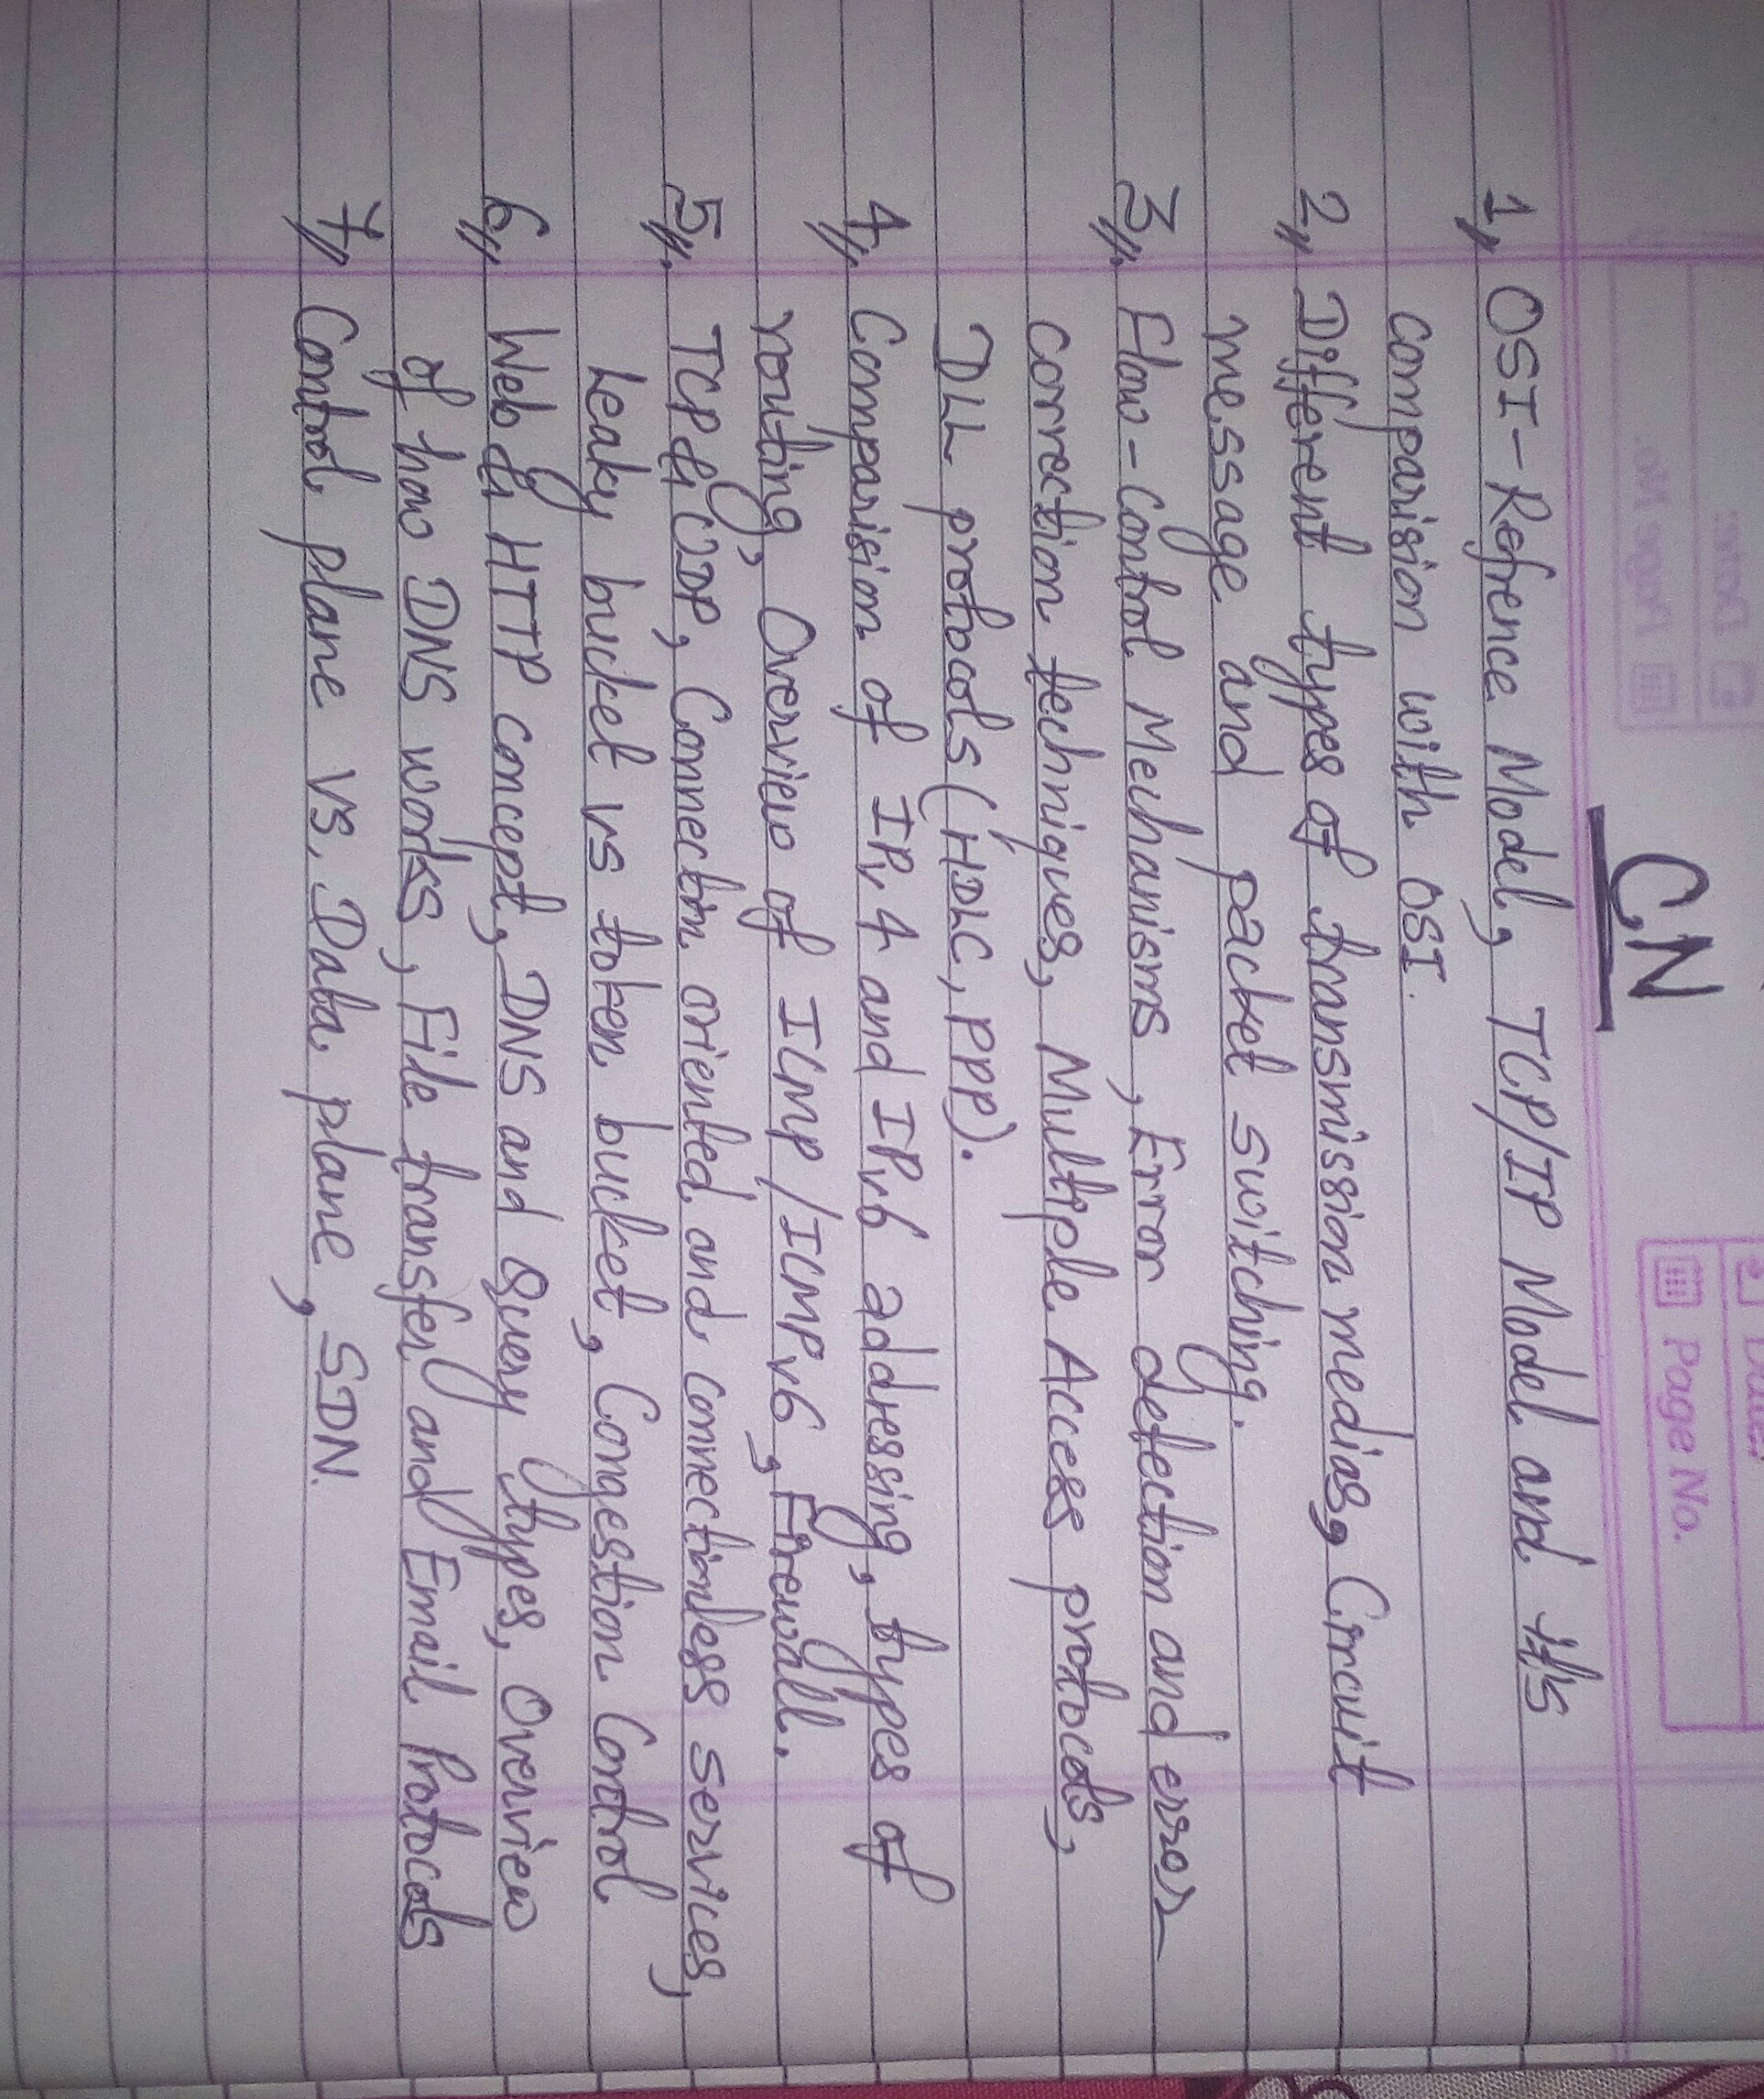 Date:
Page No.
CN
1, OSI-Refrence Model, TCP/IP Model and it's
comparision with OSI.
2, Different types of transmission medias, Circuit
message and packet switching.
3, Flow-Control Mechanisms, Error detection and error
correction techniques, Multiple Access protocols,
DLL protocols (HDLC, PPP).
4, Comparision of IPv4 and IPv6 addressing, types of
routing, Overview of ICMP/ICMPv6, Firewall.
5, TCP & UDP, Connection oriented and connectionless services,
Leaky bucket vs token bucket, Congestion Control
6, Web & HTTP concept, DNS and Query types, Overview
of how DNS works, File transfer and Email Protocols
7, Control plane vs. Data plane, SDN.